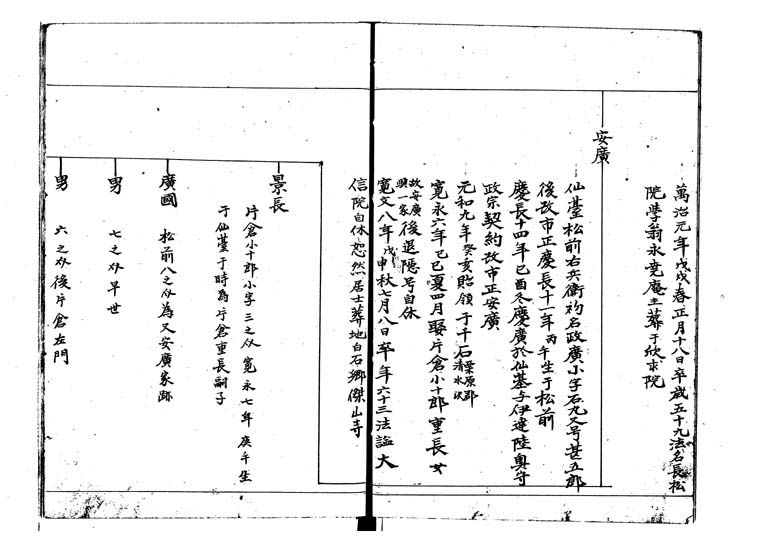 萬治元年戊戌春正月十八日卒歳五十九法名長松
院學翁永尭庵主葬于欣求院
安廣
仙䑓松前右兵衛初名政廣小字石丸又号甚五郎
後改市正慶長十一年丙午生于松前
慶長十四年己酉冬慶廣於仙䑓与伊達陸奥守
政宗契約改市正安廣
元和九年癸亥貽領于千石栗原郡清水沢
寛永六年己巳夏四月娶片倉小十郎重長女
故安廣興一家後退隠号自休
寛文八年戊申秋七月八日卒年六十三法謚大
信院自休恕然居士葬地白石郷傑山寺
景長
片倉小十郎小字三之助寛永七年庚午生
于仙䑓于時為片倉重長嗣子
廣國 松前八之助為又安廣家跡
男 七之助早世
男 六之助後片倉左門